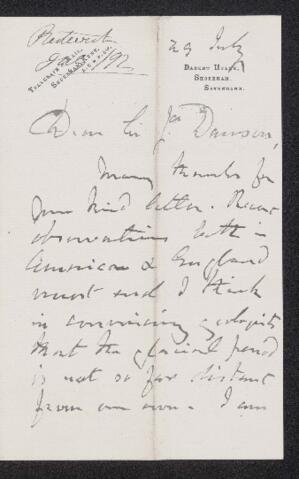 Prestwich
29 July
/92
Darent Hulme,
Shoreham,
Sevenoaks.
Dear Sir J. Dawson,
Many thanks for
your kind letter. Recent
observations both in
American & England
must end I think
in convincing geologists
that the glacial period
is not so far distant
from our own. I am